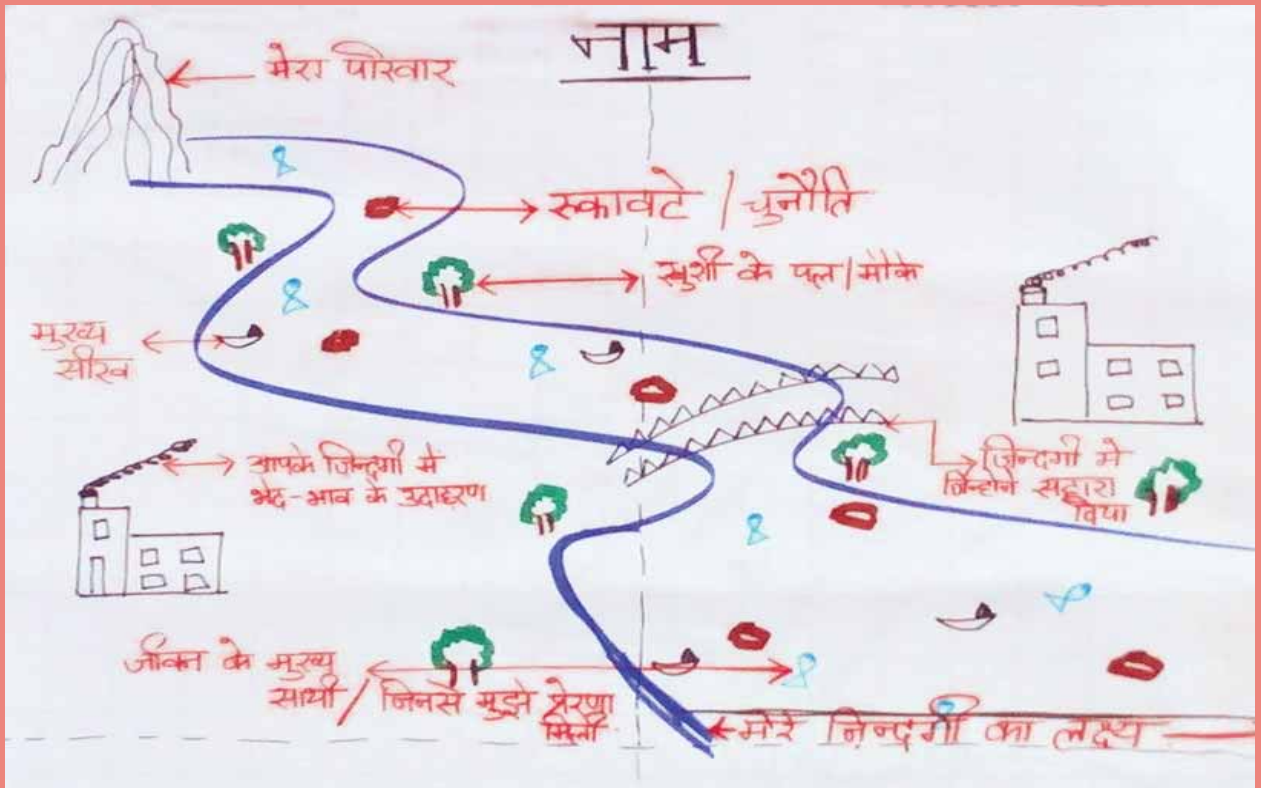 नाम
मेरा परिवार
रुकावटे / चुनौति
खुशी के पल / मौके
मुख्य
सीख
आपके जिन्दगी मे
भेद-भाव के उदाहरण
जिन्दगी मे
जिन्होने सहारा
दिया
जीवन के मुख्य
साथी / जिनसे मुझे प्रेरणा
मिली
मेरे जिन्दगी का लक्ष्य